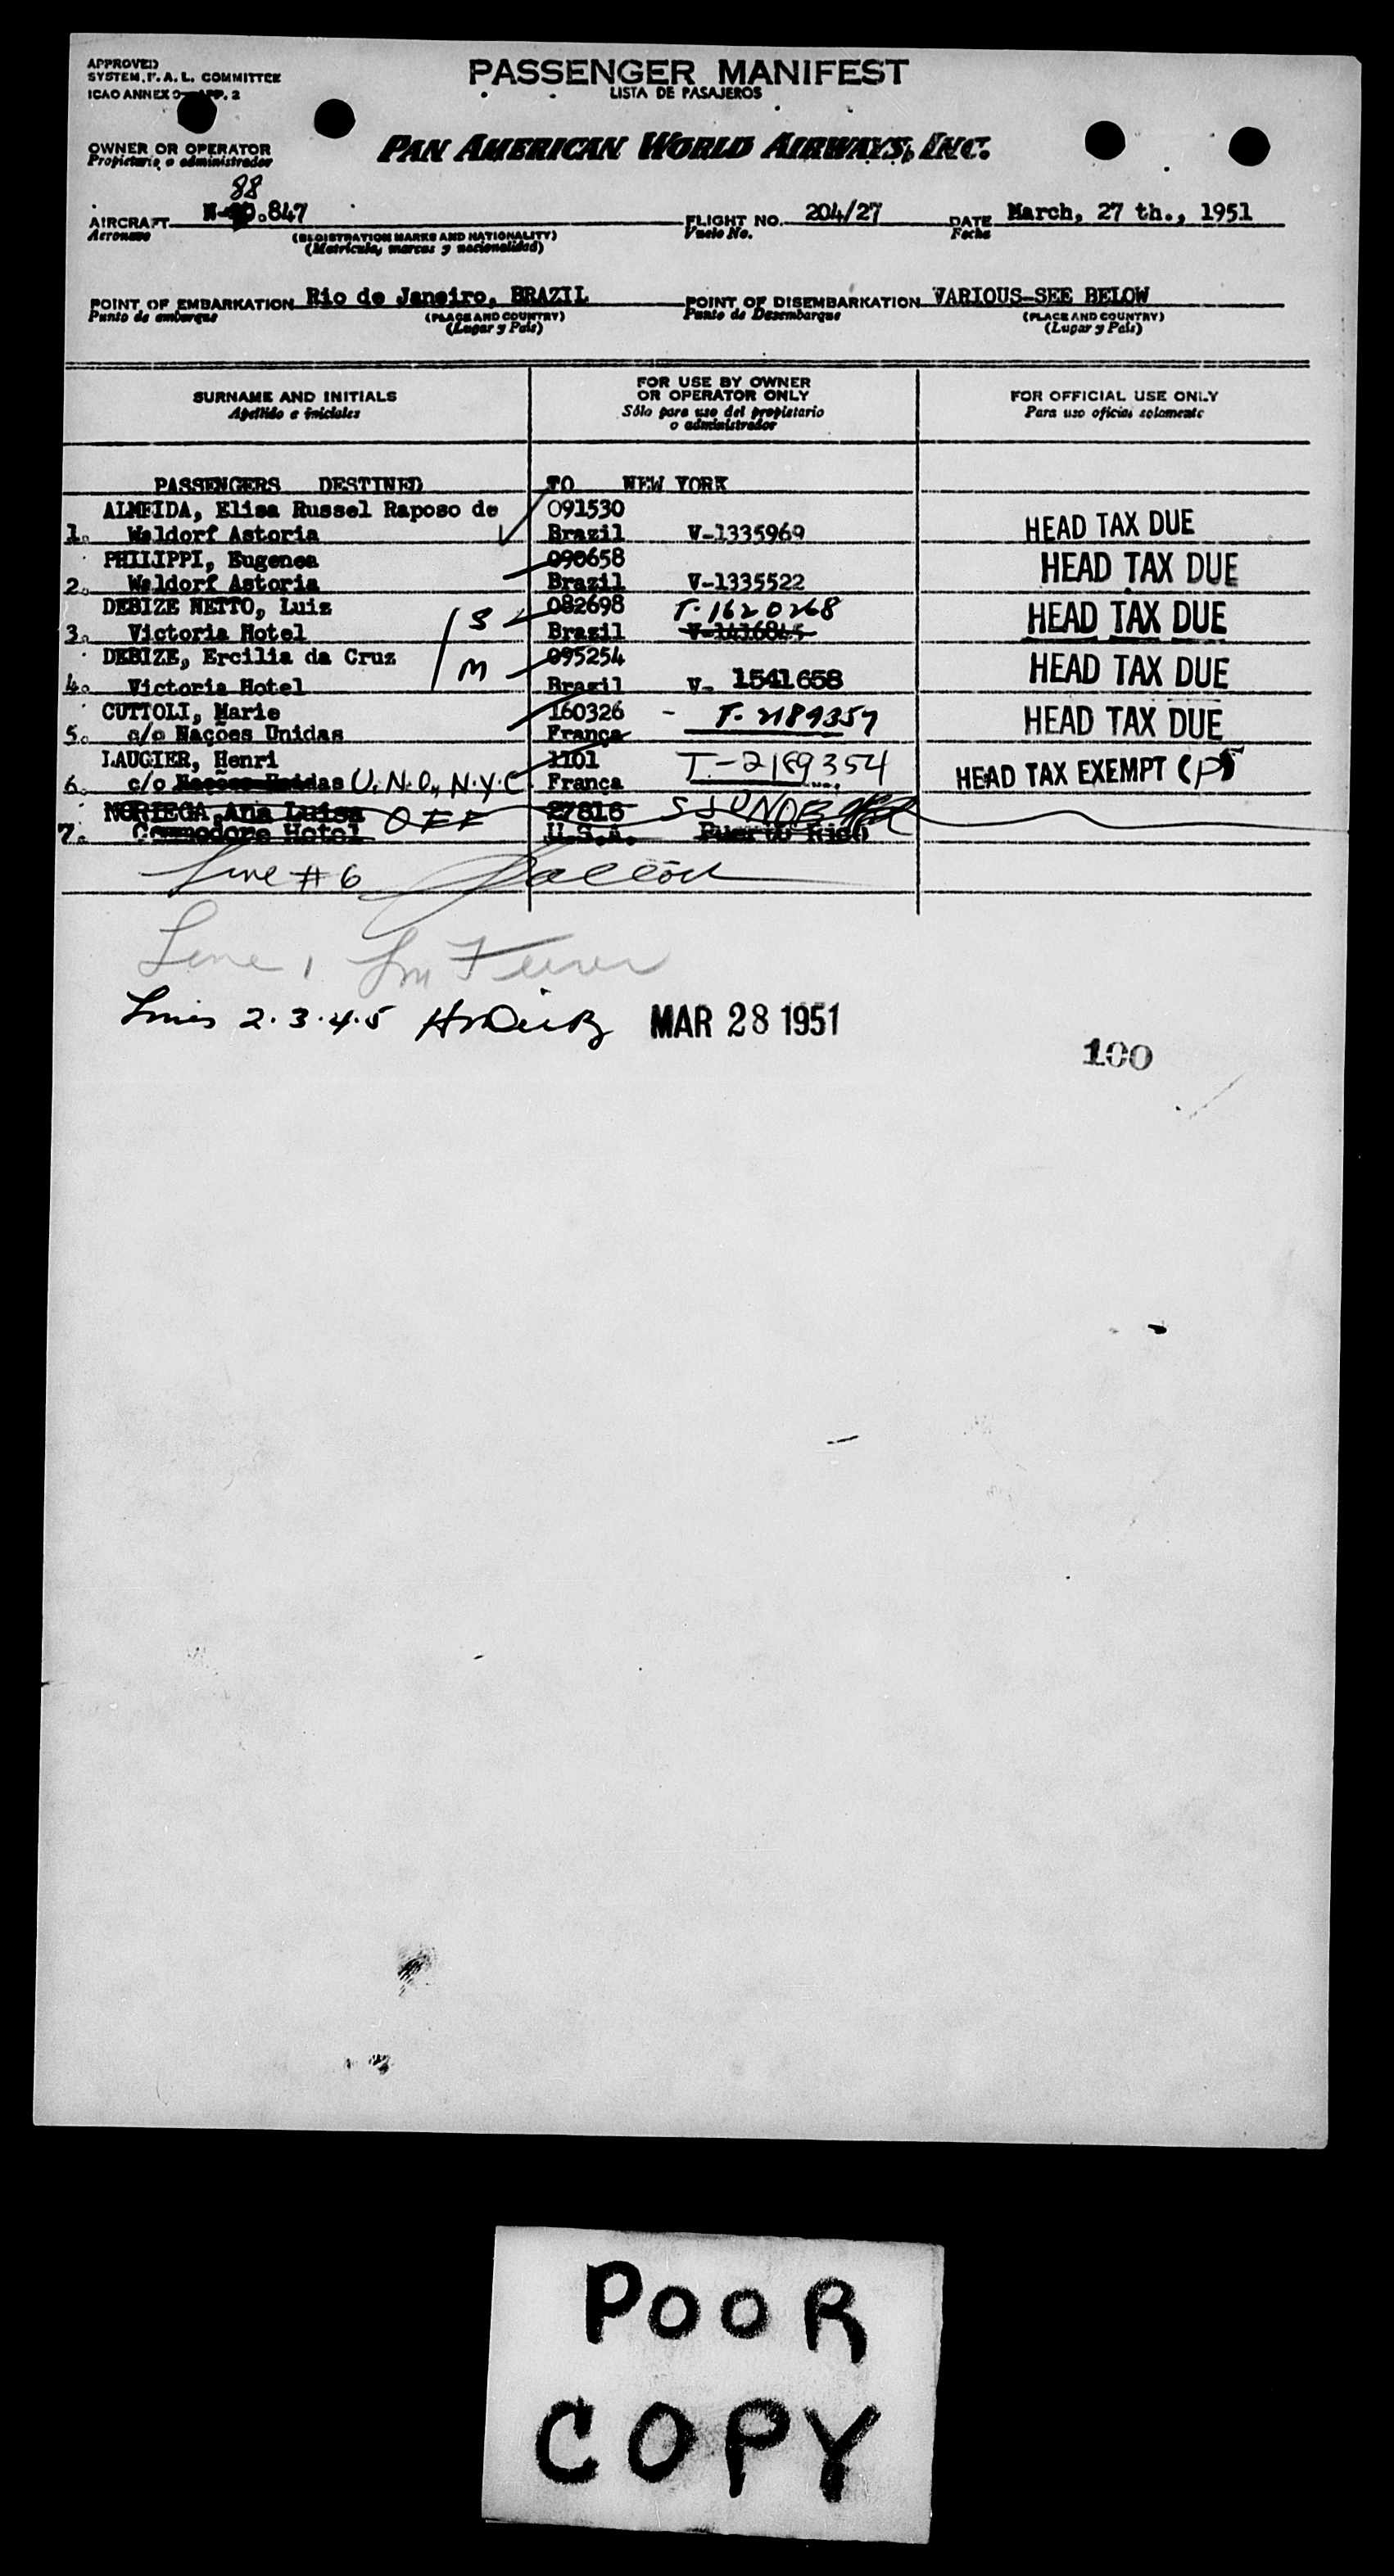 APPROVED
SYSTEM, F. A. L. COMMITTEE
ICAO ANNEX 9 APP. 2
PASSENGER MANIFEST
LISTA DE PASAJEROS
OWNER OR OPERATOR
Propietario o administrador
PAN AMERICAN WORLD AIRWAYS, INC.
88
AIRCRAFT N- .847 FLIGHT NO. 204/27 DATE March, 27 th., 1951
Aeronave (REGISTRATION MARKS AND NATIONALITY) Vuelo No. Fecha
(Matrícula, marcas y nacionalidad)
POINT OF EMBARKATION Rio de Janeiro, BRAZIL POINT OF DISEMBARKATION VARIOUS-SEE BELOW
Punto de embarque (PLACE AND COUNTRY) Punto de Desembarque (PLACE AND COUNTRY)
(Lugar y País) (Lugar y País)
SURNAME AND INITIALS FOR USE BY OWNER OR OPERATOR ONLY FOR OFFICIAL USE ONLY
Apellido e iniciales Sólo para uso del propietario o administrador Para uso oficial solamente
PASSENGERS DESTINED TO NEW YORK
ALMEIDA, Elisa Russel Raposo de 091530
1. Waldorf Astoria Brazil V-1335969 HEAD TAX DUE
PHILIPPI, Eugenea 090658
2. Waldorf Astoria Brazil V-1335522 HEAD TAX DUE
DEBIZE NETTO, Luiz S 082698 T-1620268
3. Victoria Hotel Brazil HEAD TAX DUE
DEBIZE, Ercilia da Cruz M 095254
4. Victoria Hotel Brazil V- 1541658 HEAD TAX DUE
CUTTOLI, Marie 160326 - T-2189357
5. c/o Nações Unidas França HEAD TAX DUE
LAUGIER, Henri 1101 T-2189354
6. c/o Nações Unidas U.N.O., N.Y.C. França HEAD TAX EXEMPT (P)
NORIEGA, Ana Luisa OFF 27816
7. Commodore Hotel U.S.A. Puerto Rico
Line # 6
Line 1
Lines 2.3.4.5 MAR 28 1951
100
POOR
COPY